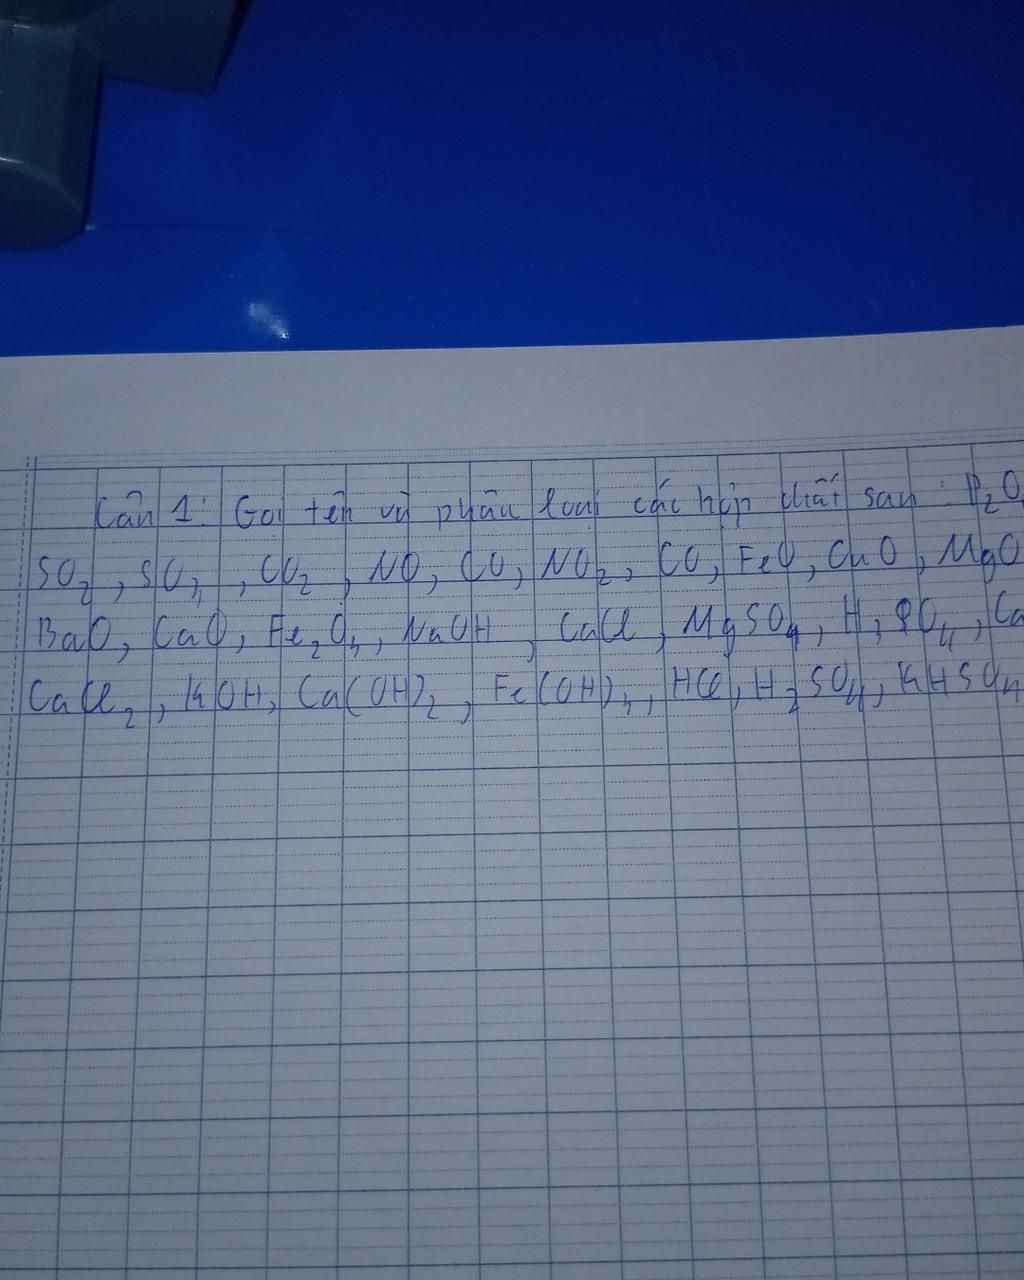 Câu 1: Gọi tên và phân loại các hợp chất sau: P₂O
SO₂, SO₃, CO₂, NO, CO, NO₂, CO, FeO, CuO, MgO
BaO, CaO, Fe₂O₃, NaOH, CaCl, MgSO₄, H₃PO₄, Ca
CaCl₂, KOH, Ca(OH)₂, Fe(OH)₃, HCl, H₂SO₄, KHSO₄